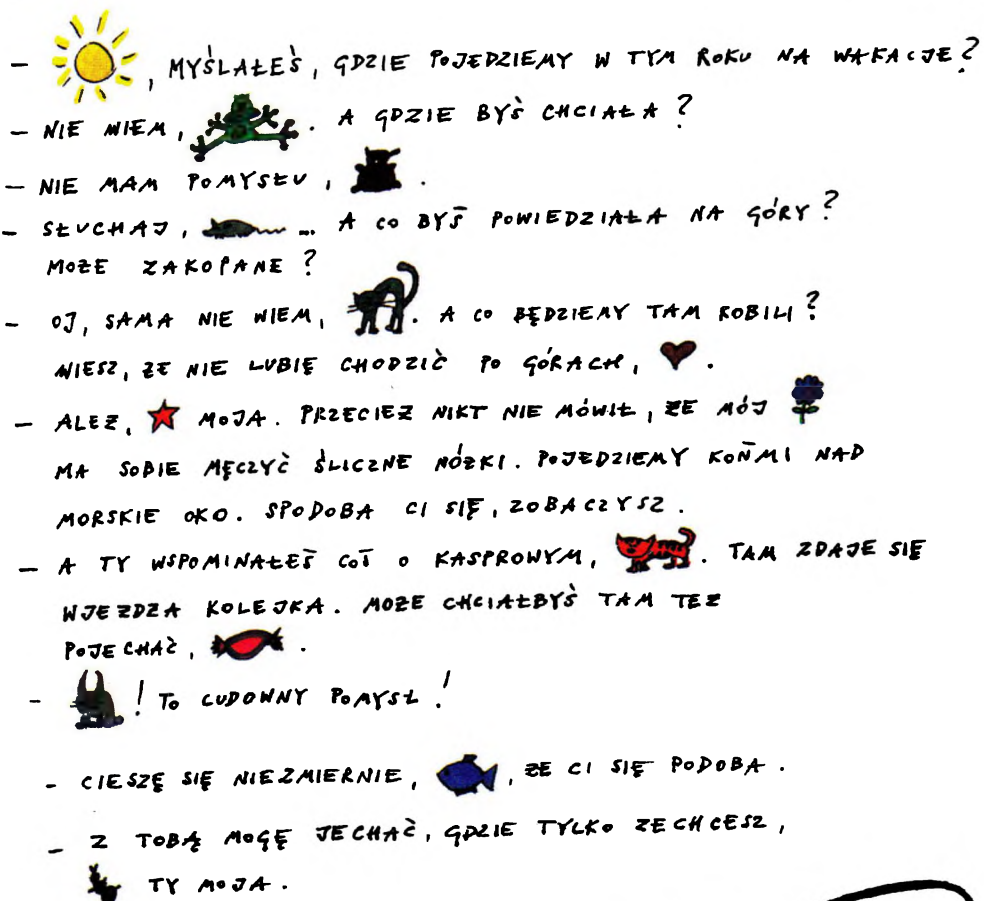 – , MYŚLAŁEŚ, GDZIE POJEDZIEMY W TYM ROKU NA WAKACJE?
– NIE WIEM, . A GDZIE BYŚ CHCIAŁA?
– NIE MAM POMYSŁU, .
– SŁUCHAJ, ... A CO BYŚ POWIEDZIAŁA NA GÓRY?
MOŻE ZAKOPANE?
– OJ, SAMA NIE WIEM, . A CO BĘDZIEMY TAM ROBILI?
WIESZ, ŻE NIE LUBIĘ CHODZIĆ PO GÓRACH, .
– ALEŻ, MOJA. PRZECIEŻ NIKT NIE MÓWIŁ, ŻE MÓJ
MA SOBIE MĘCZYĆ ŚLICZNE NÓŻKI. POJEDZIEMY KOŃMI NAD
MORSKIE OKO. SPODOBA CI SIĘ, ZOBACZYSZ.
– A TY WSPOMINAŁEŚ COŚ O KASPROWYM, . TAM ZDAJE SIĘ
WJEŻDŻA KOLEJKA. MOŻE CHCIAŁBYŚ TAM TEŻ
POJECHAĆ, .
– ! TO CUDOWNY POMYSŁ!
– CIESZĘ SIĘ NIEZMIERNIE, , ŻE CI SIĘ PODOBA.
– Z TOBĄ MOGĘ JECHAĆ, GDZIE TYLKO ZECHCESZ,
TY MOJA.